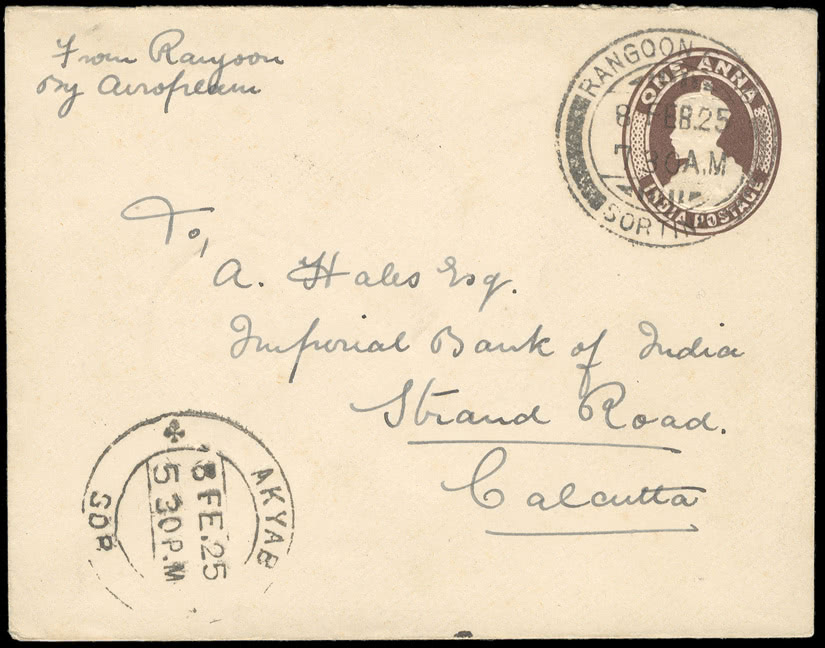 From Rangoon
By Airoplain
RANGOON
ONE ANNA
8 FEB.25
7 30A.M
INDIA POSTAGE
SORTIN
To,
A. Hales Esq.
Imperial Bank of India
Strand Road.
Calcutta
AKYAB
8 FE.25
5 30P.M
SOR